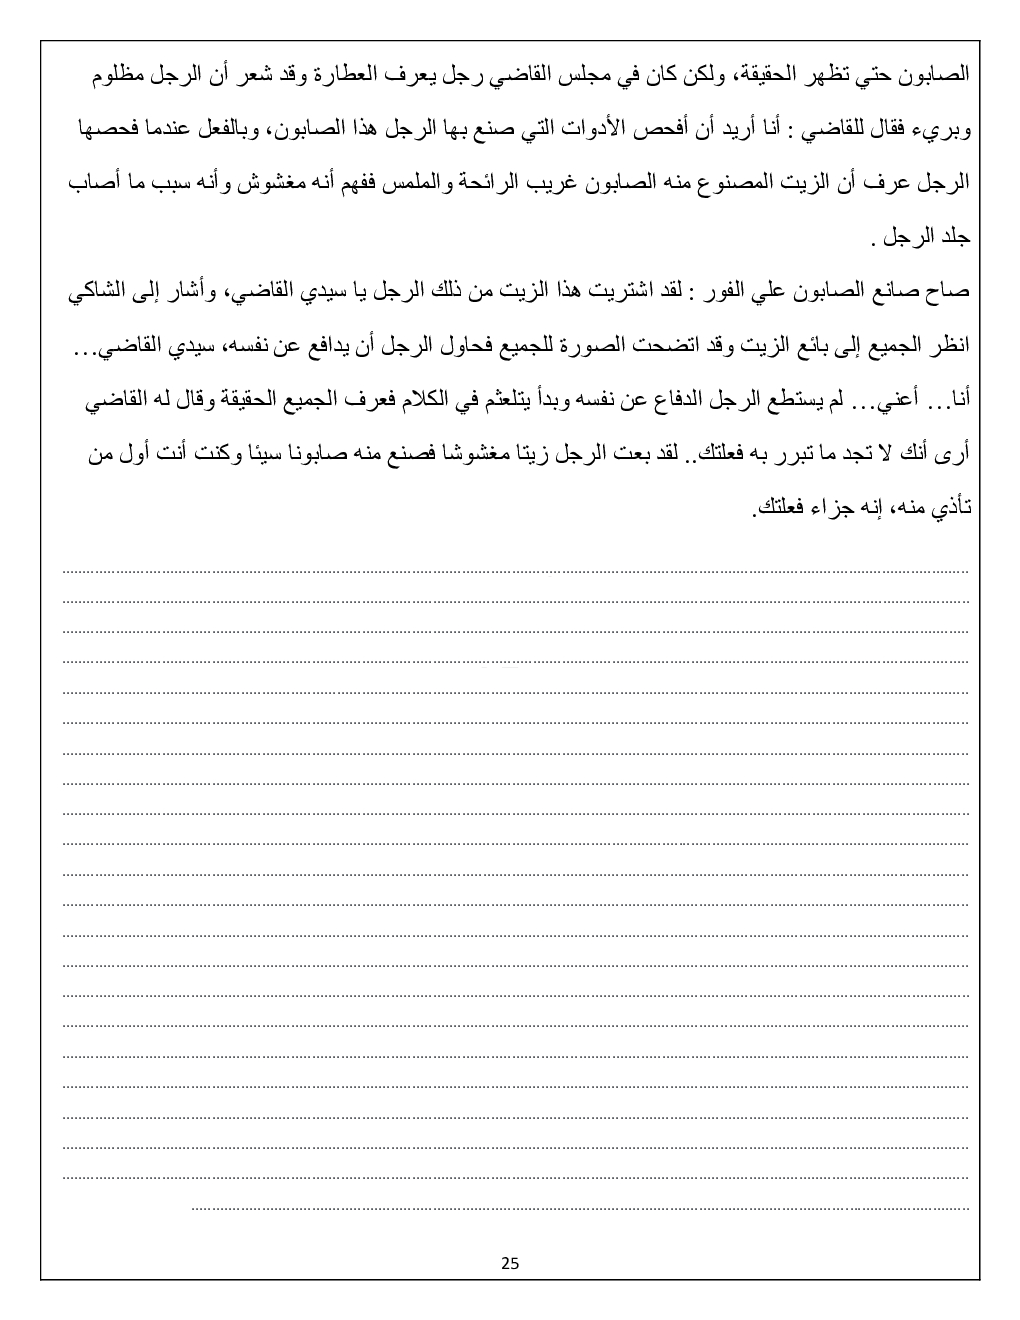 الصابون حتي تظهر الحقيقة، ولكن كان في مجلس القاضي رجل يعرف العطارة وقد شعر أن الرجل مظلوم
وبريء فقال للقاضي : أنا أريد أن أفحص الأدوات التي صنع بها الرجل هذا الصابون، وبالفعل عندما فحصها
الرجل عرف أن الزيت المصنوع منه الصابون غريب الرائحة والملمس ففهم أنه مغشوش وأنه سبب ما أصاب
جلد الرجل .
صاح صانع الصابون علي الفور : لقد اشتريت هذا الزيت من ذلك الرجل يا سيدي القاضي، وأشار إلى الشاكي
انظر الجميع إلى بائع الزيت وقد اتضحت الصورة للجميع فحاول الرجل أن يدافع عن نفسه، سيدي القاضي…
أنا… أعني… لم يستطع الرجل الدفاع عن نفسه وبدأ يتلعثم في الكلام فعرف الجميع الحقيقة وقال له القاضي
أرى أنك لا تجد ما تبرر به فعلتك.. لقد بعت الرجل زيتا مغشوشا فصنع منه صابونا سيئا وكنت أنت أول من
تأذي منه، إنه جزاء فعلتك.
25